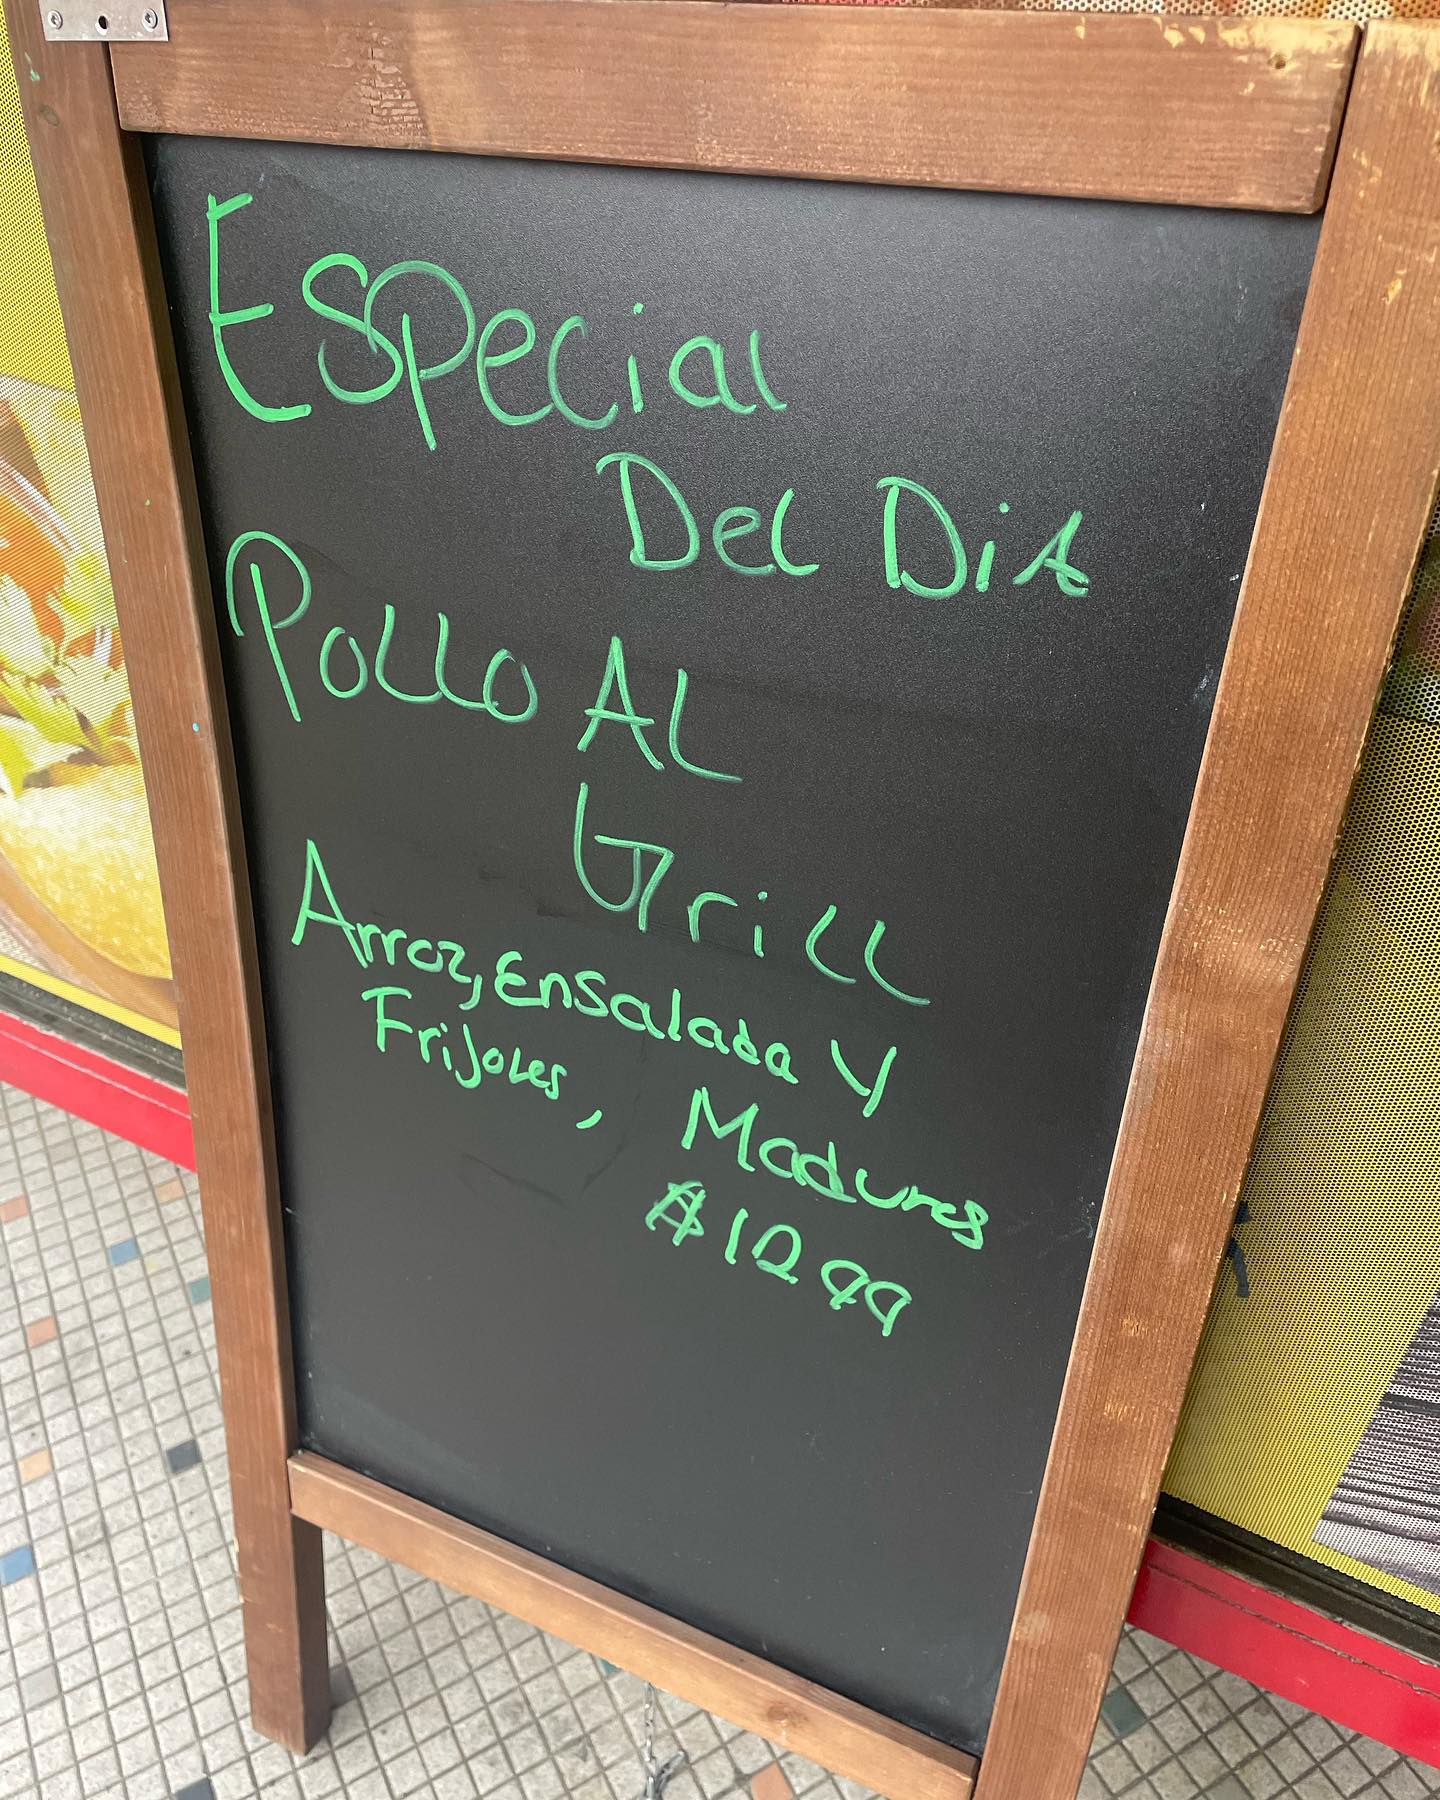 Especial
Del Dia
Pollo Al
Grill
Arroz, Ensalada Y
Frijoles, Madures
$12 99